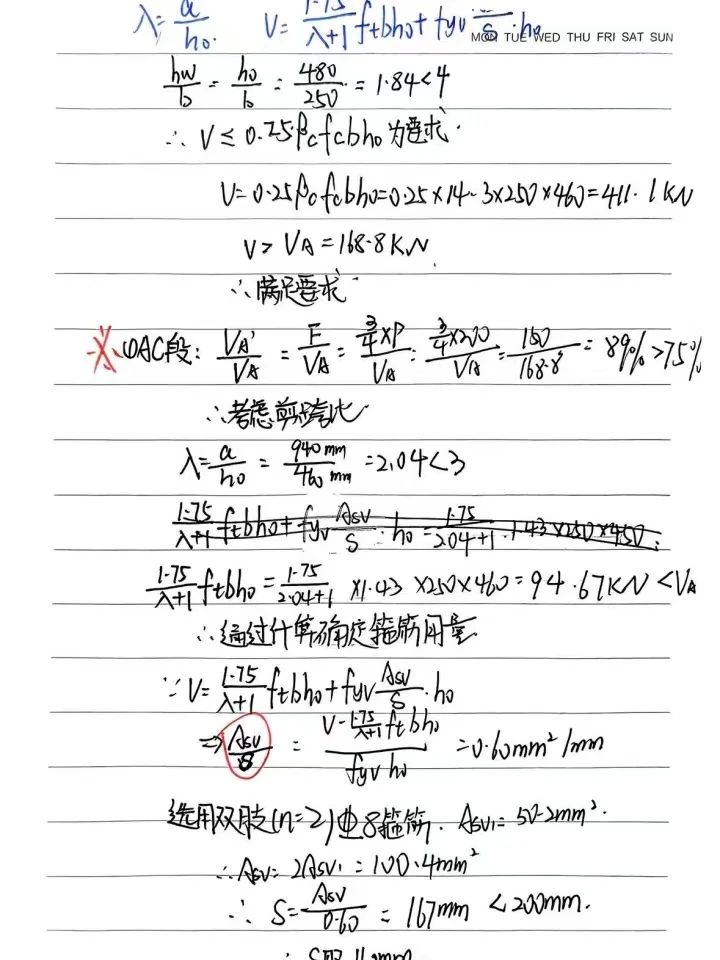 λ=a/h0. V=1.75/(λ+1) ftbh0+fyv /S·h0
MON TUE WED THU FRI SAT SUN
hw/b=h0/b=480/250=1.84<4
∴V≤0.25βcfcbh0为要求.
V=0.25βcfcbh0=0.25×14.3×250×460=411.1KN
V>VA=168.8KN
∴满足要求
※ ①AC段: VA'/VA=F/VA=(3/4×P)/VA=(3/4×200)/VA=150/168.8=89%>75%
∴考虑剪跨比
λ=a/h0=940mm/460mm=2.04<3
1.75/(λ+1) ftbh0+fyv Asv/S·h0=1.75/(2.04+1)·1.43×250×450.
1.75/(λ+1) ftbh0=1.75/(2.04+1)×1.43×250×460=94.67KN<VA
∴通过计算确定箍筋用量
∵V=1.75/(λ+1) ftbh0+fyv Asv/S·h0
⇒Asv/S=(V-1.75/(λ+1) ftbh0)/(fyvh0)=0.60mm²/mm
选用双肢(n=2)ф8箍筋. Asv1=50.2mm².
∴Asv=2Asv1=100.4mm²
∴S=Asv/0.60=167mm<200mm.
∴S取